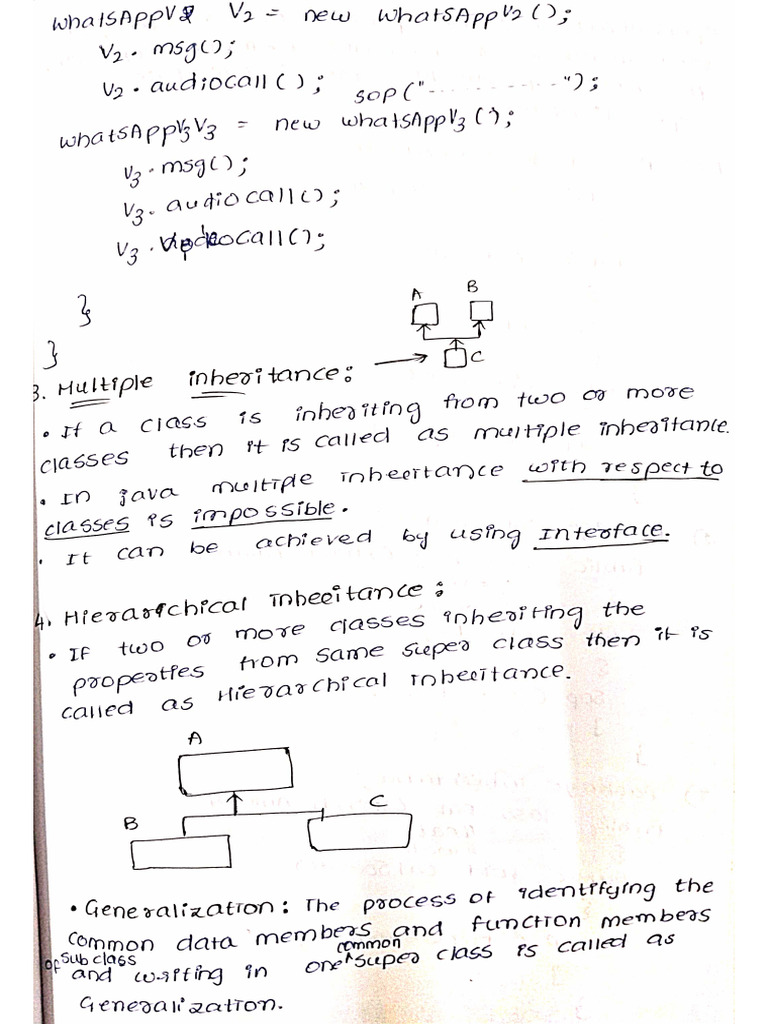 WhatsAppV2 V2 = new WhatsAppV2();
V2. msg();
V2. audiocall(); sop("- - - - - - - - - -");
WhatsAppV3 V3 = new WhatsAppV3();
V3. msg();
V3. audiocall();
V3. Videocall();
}
A B
}
C
3. Multiple inheritance:
• If a class is inheriting from two or more
classes then it is called as multiple inheritance.
• In java multiple inheritance with respect to
classes is impossible.
• It can be achieved by using Interface.
4. Hierarchical Inheritance:
• If two or more classes inheriting the
properties from same super class then it is
called as Hierarchical Inheritance.
A
B C
• Generalization: The process of identifying the
common data members and function members
of subclass and writing in one common super class is called as
Generalization.